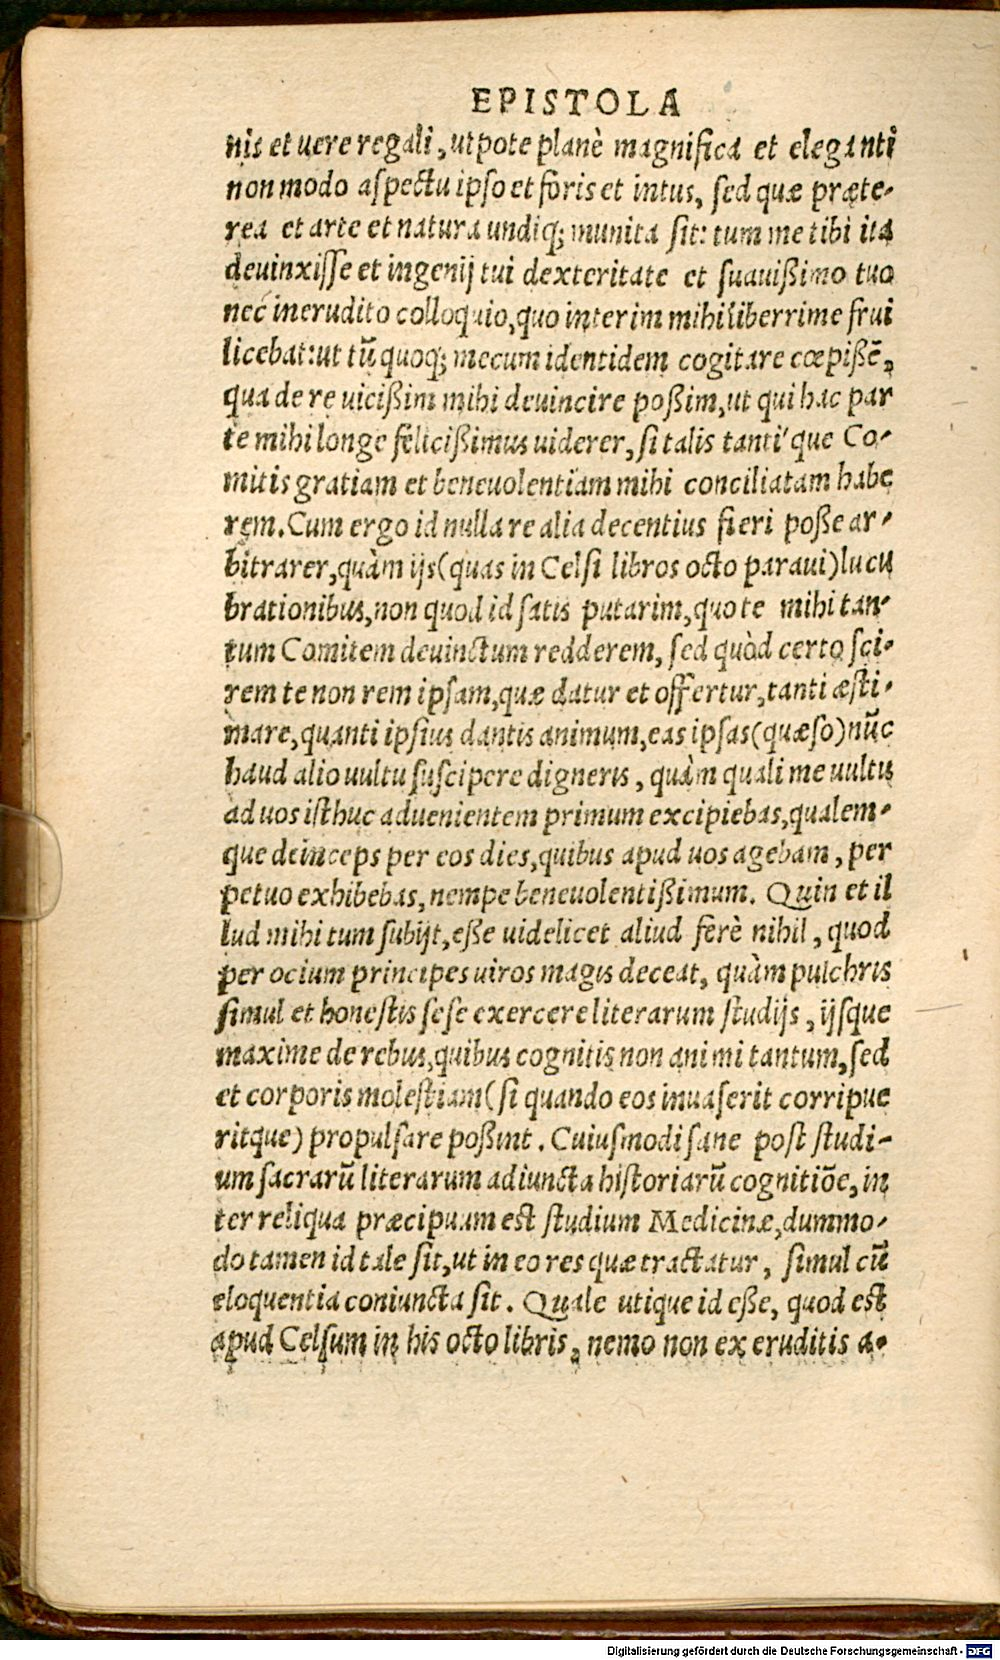 EPISTOLA
nis et uere regali, utpote planè magnifica et eleganti
non modo aſpectu ipſo et foris et intus, ſed quæ præte-
rea et arte et natura undiq; munita ſit: tum me tibi ita
deuinxiſſe et ingenij tui dexteritate et ſuauißimo tuo
nec inerudito colloquio, quo interim mihi liberrime frui
licebat: ut tū quoq; mecum identidem cogitare cœpißē,
qua de re uicißim mihi deuincire poßim, ut qui hac par
te mihi longe felicißimus uiderer, ſi talis tanti'que Co-
mitis gratiam et beneuolentiam mihi conciliatam habe
rem. Cum ergo id nulla re alia decentius fieri poße ar-
bitrarer, quàm ijs (quas in Celſi libros octo paraui) lucu
brationibus, non quod id ſatis putarim, quo te mihi tan-
tum Comitem deuinctum redderem, ſed quòd certo ſci-
rem te non rem ipſam, quæ datur et offertur, tanti æſti-
mare, quanti ipſius dantis animum, eas ipſas (quæſo) nūc
haud alio uultu ſuſcipere digneris, quàm quali me uultu
ad uos iſthuc aduenientem primum excipiebas, qualem-
que deinceps per eos dies, quibus apud uos agebam, per
petuo exhibebas, nempe beneuolentißimum. Quin et il
lud mihi tum ſubijt, eße uidelicet aliud ferè nihil, quod
per ocium principes uiros magis deceat, quàm pulchris
ſimul et honeſtis ſeſe exercere literarum ſtudijs, ijſque
maxime de rebus, quibus cognitis non animi tantum, ſed
et corporis moleſtiam (ſi quando eos inuaſerit corripue
ritque) propulſare poßint. Cuiuſmodi ſane poſt ſtudi-
um ſacrarū literarum adiuncta hiſtoriarū cognitiōe, in
ter reliqua præcipuum eſt ſtudium Medicinæ, dummo-
do tamen id tale ſit, ut in eo res quæ tractatur, ſimul cū
eloquentia coniuncta ſit. Quale utique id eße, quod eſt
apud Celſum in his octo libris, nemo non ex eruditis a-
Digitalisierung gefördert durch die Deutsche Forschungsgemeinschaft - DFG